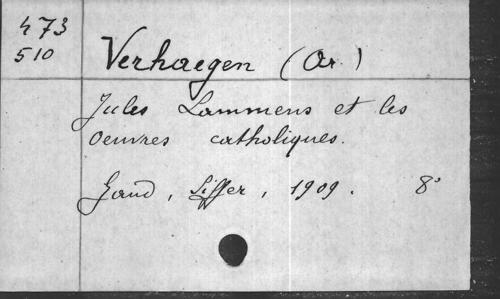 473
510
Verhaegen (Ar.)
Jules Lammens et les
Oeuvres catholiques.
Gand, Siffer, 1909. 8°